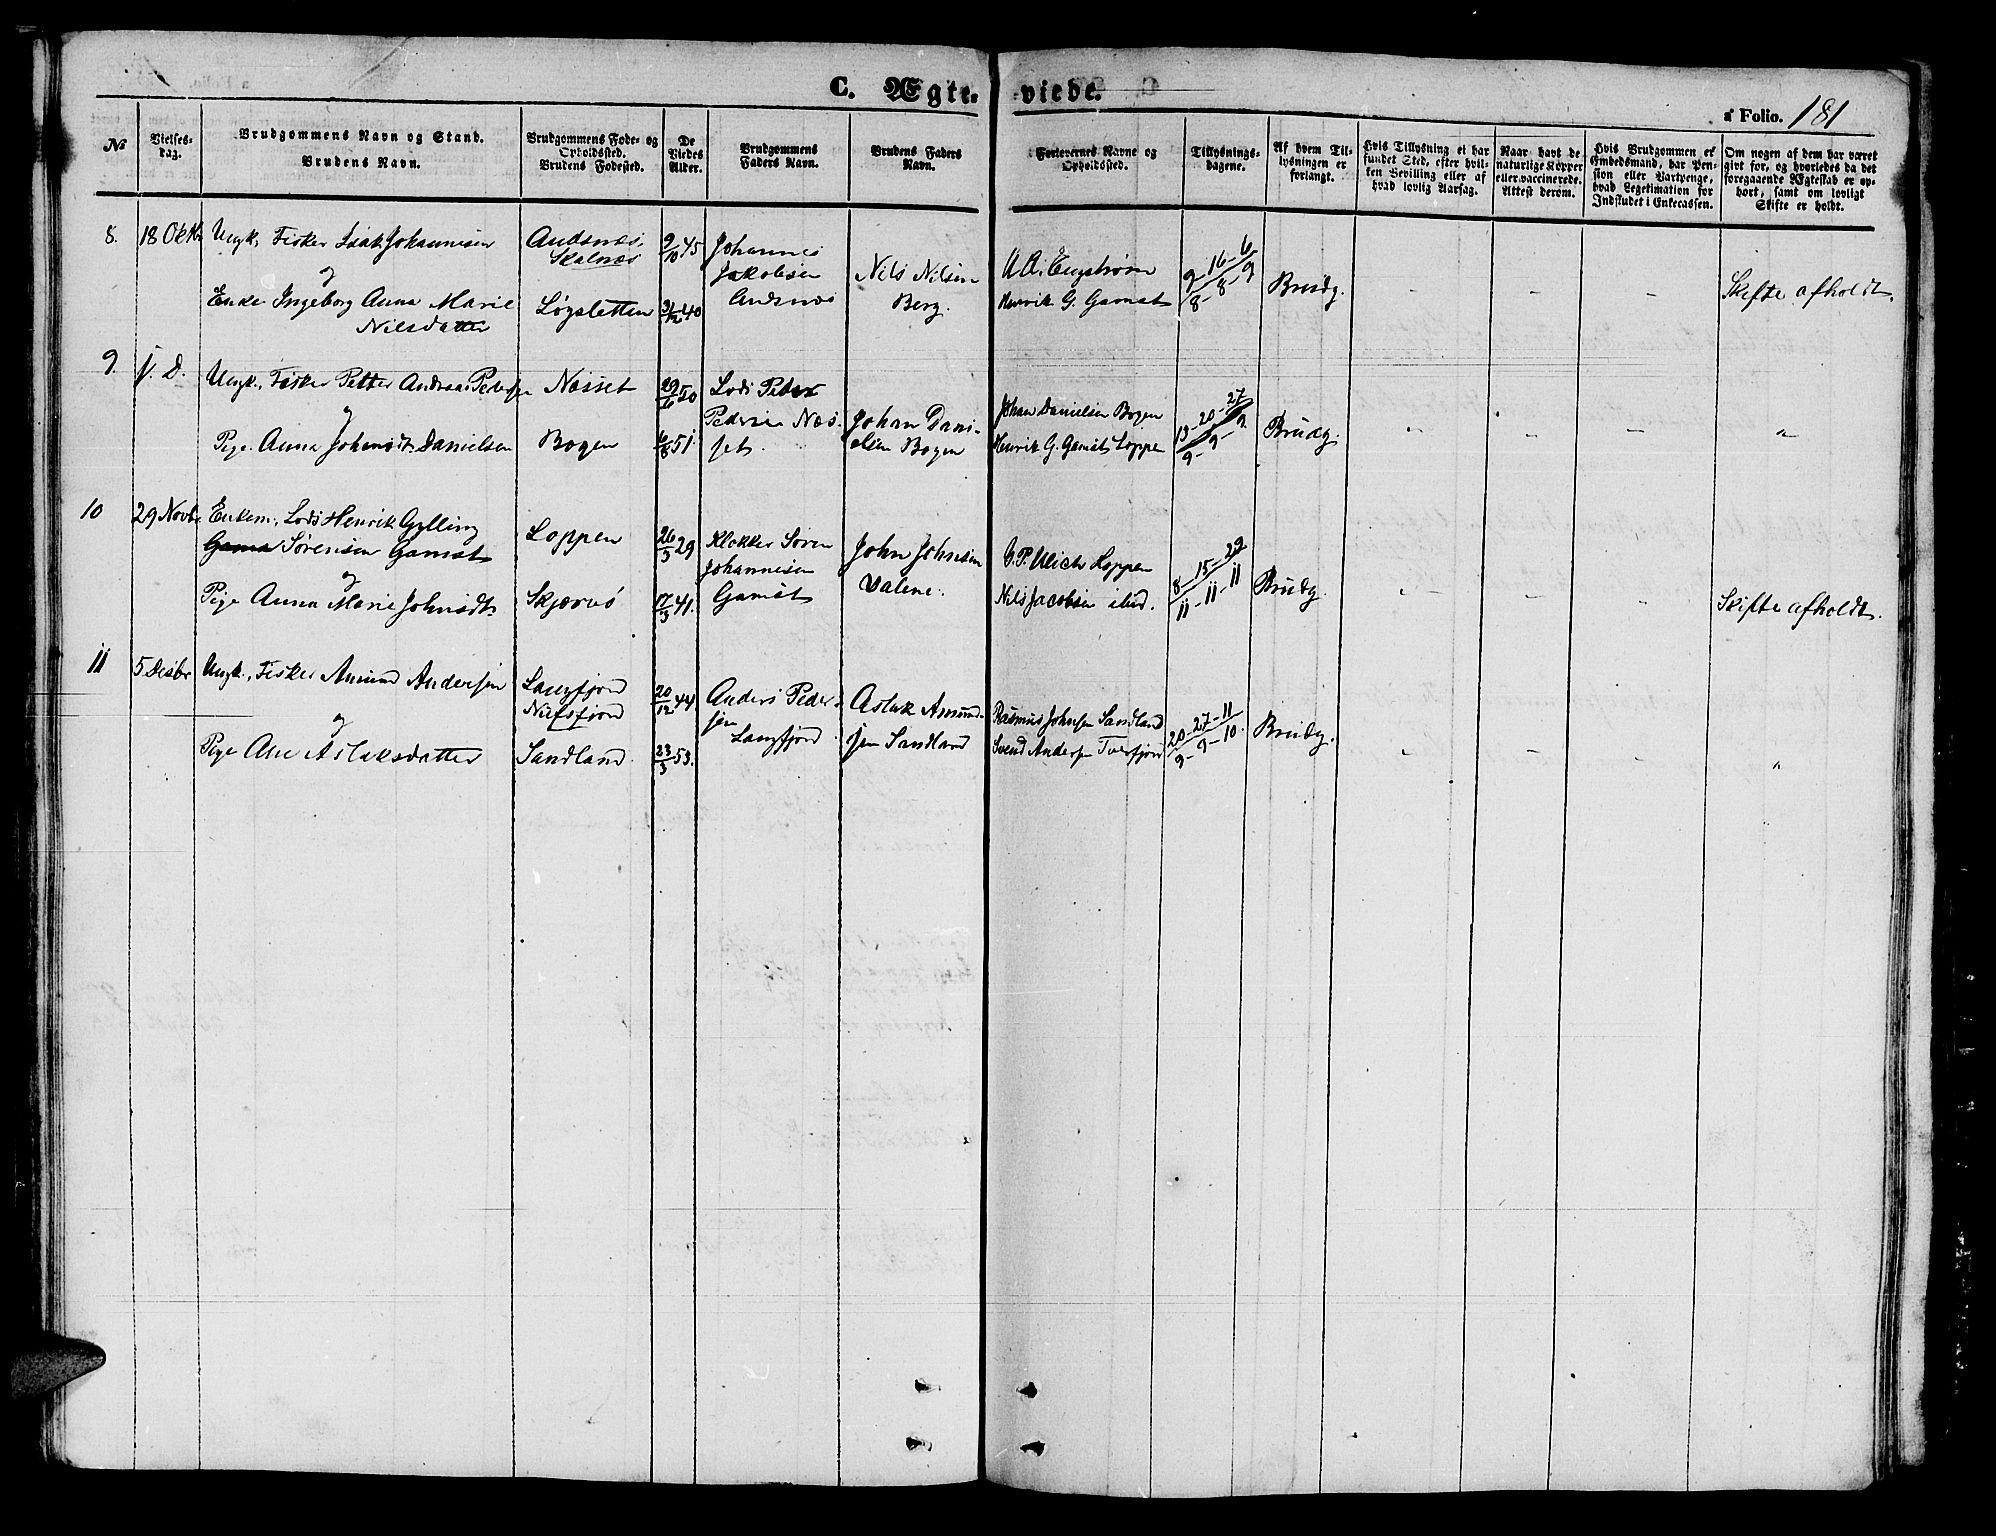 C. Ægte- viede.
a Folio. 181
No
Vielses-
dag.
Brudgommens Navn og Stand.
Brudens Navn.
Brudgommens Føde- og
Opholdssted.
Brudens Fødested.
De
Viedes
Alter.
Brudgommens
Faders Navn.
Brudens Faders
Navn.
Forlovernes Navne og
Opholdssted.
Tillysnings-
dagene.
Af hvem Til-
lysningen er
forlangt.
Hvis Tillysning ei har
fundet Sted, efter hvil-
ken Bevilling eller af
hvad lovlig Aarsag.
Naar havt de
naturlige Kopper
eller vaccinerede.
Attest derom.
Hvis Brudgommen er
Embedsmand, har Pen-
sion eller Vartpenge,
hvad Legetimation for
Indskudet i Enkecassen.
Om nogen af dem har været
givt for, og hvorledes da det
foregaaende Ægteskab er op-
hørt, samt om lovligt
Skifte er holdt.
8.
18 Oktr
Ungk, Fisker Isak Johannesen
og
Enke Ingeborg Anna Marie
Nilsdatter
Andsnæs,
Skalnæs
Løgsletten
9/10 45
31/12 40
Johannes
Jakobsen
Andsnæs
Nils Nilsen
Berg.
Engstrøm
Henrik G. Gamst
9-16-6
8-8-9
Brudg.
-
-
-
Skifte afholdt.
9.
s. D.
Ungk, Fisker Petter Andreas Pedersen
og
Pige Anna Johansdt. Danielsen
Næsset
Bogen
29/6 50
6/8 51
Lods Peder
Pedersen Næs-
set.
Johan Dani-
elsen Bogen
Johan Danielsen Bogen
Henrik G. Gamst Loppen
13-20-27
9-9-9
Brudg.
"
"
"
"
10
29 Novbr
Enkem, Lods Henrik Gylling
Gams Sørensen Gamst
og
Pige Anna Marie Johnsdt.
Loppen
Skjærvø
26/3 29
17/3 41.
Klokker Søren
Johannesen
Gamst
John Johnsen
Valene.
G. P. Ulich Loppen
Nils Jacobsen ibid.
8-15-22
11-11-11
Brudg.
"
"
"
Skifte afholdt.
11
5 Desbr
Ungk., Fisker Amund Andersen
og
Pige Ane Aslaksdatter
Langfjord
Nufsfjord
Sandland.
20/12 44
23/3 53.
Anders Peder-
sen
Langfjord.
Aslak Amund-
sen Sandland
Rasmus Johnsen Sandland
Svend Andersen Tverfjord
20-27-11
9-9-10.
Brudg.
"
"
"
"